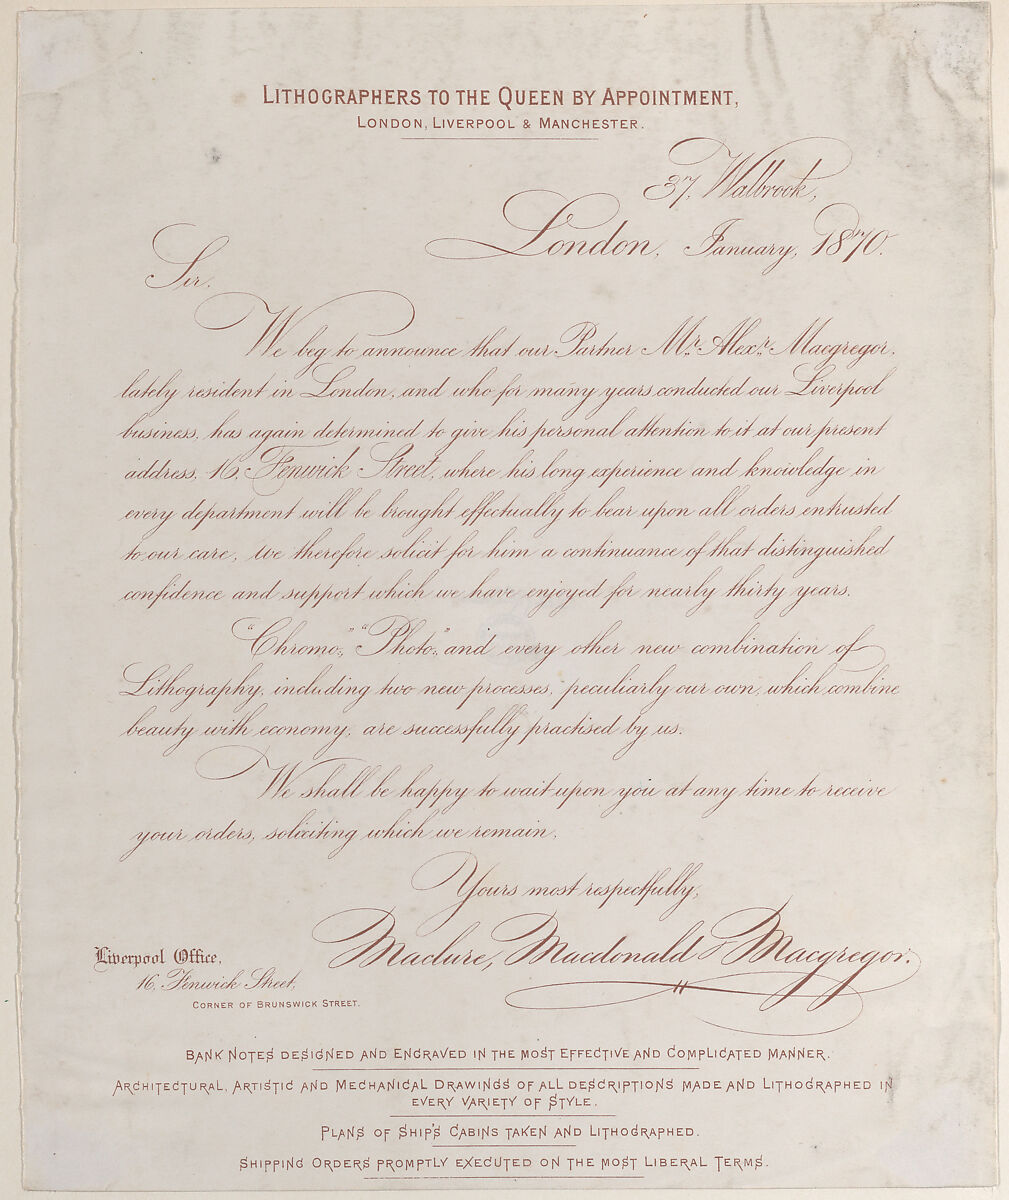 LITHOGRAPHERS TO THE QUEEN BY APPOINTMENT,
LONDON, LIVERPOOL & MANCHESTER.
37, Walbrook,
London, January, 1870.
Sir,
We beg to announce that our Partner Mr. Alexr. Macgregor,
lately resident in London, and who for many years conducted our Liverpool
business, has again determined to give his personal attention to it at our present
address, 16, Fenwick Street, where his long experience and knowledge in
every department will be brought effectually to bear upon all orders entrusted
to our care, we therefore solicit for him a continuance of that distinguished
confidence and support which we have enjoyed for nearly thirty years.
"Chromo," "Photo," and every other new combination of
Lithography, including two new processes, peculiarly our own, which combine
beauty with economy, are successfully practised by us.
We shall be happy to wait upon you at any time to receive
your orders, soliciting which we remain,
Yours most respectfully,
Maclure, Macdonald & Macgregor.
Liverpool Office,
16, Fenwick Street,
CORNER OF BRUNSWICK STREET.
BANK NOTES DESIGNED AND ENGRAVED IN THE MOST EFFECTIVE AND COMPLICATED MANNER.
ARCHITECTURAL, ARTISTIC AND MECHANICAL DRAWINGS OF ALL DESCRIPTIONS MADE AND LITHOGRAPHED IN
EVERY VARIETY OF STYLE.
PLANS OF SHIP'S CABINS TAKEN AND LITHOGRAPHED.
SHIPPING ORDERS PROMPTLY EXECUTED ON THE MOST LIBERAL TERMS.